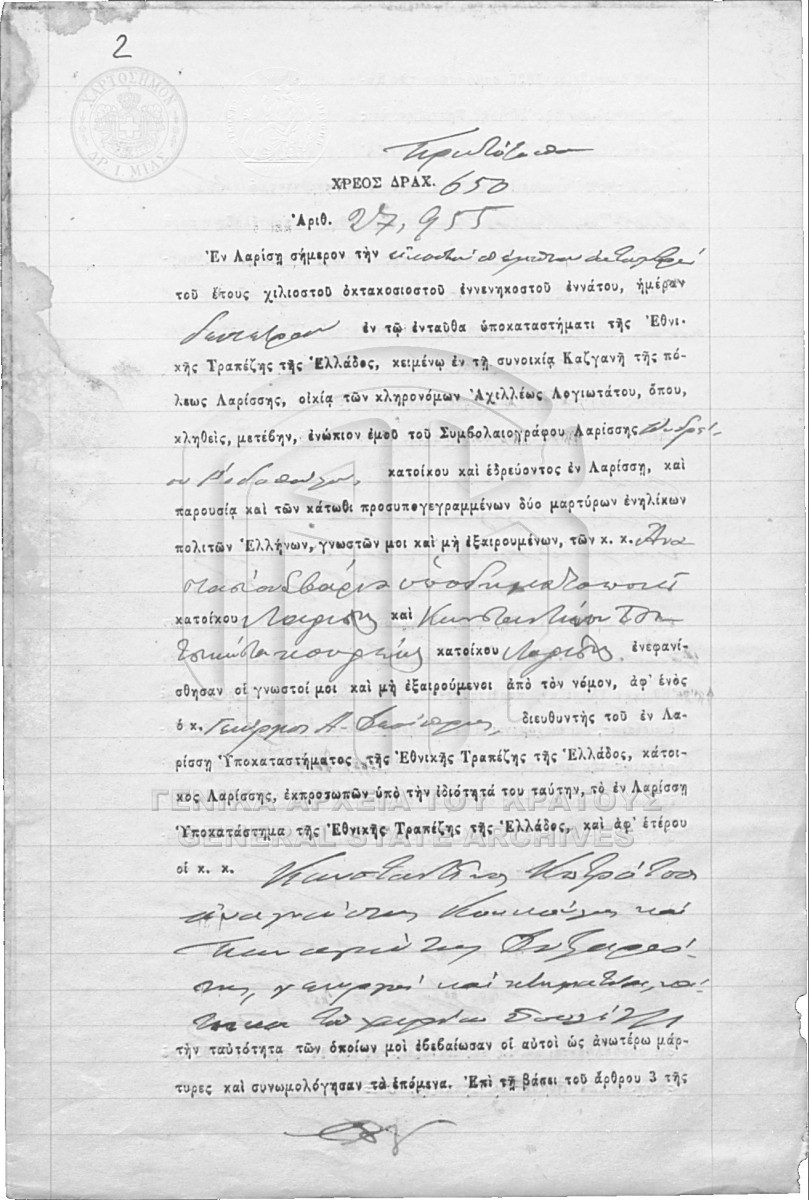 2
ΧΑΡΤΟΣΗΜΟΝ
ΔΡ. 1. ΜΙΑΣ
Πρωτότυπον
ΧΡΕΟΣ ΔΡΑΧ. 650
Ἀριθ. 27,955
Ἐν Λαρίσῃ σήμερον τὴν εἰκοστὴν πέμπτην Ὀκτωβρίου
τοῦ ἔτους χιλιοστοῦ ὀκτακοσιοστοῦ ἐννενηκοστοῦ ἐννάτου, ἡμέραν
Δευτέραν ἐν τῷ ἐνταῦθα ὑποκαταστήματι τῆς Ἐθνι-
κῆς Τραπέζης τῆς Ἑλλάδος, κειμένῳ ἐν τῇ συνοικίᾳ Καζγανῆ τῆς πό-
λεως Λαρίσσης, οἰκίᾳ τῶν κληρονόμων Ἀχιλλέως Λογιωτάτου, ὅπου,
κληθεὶς, μετέβην, ἐνώπιον ἐμοῦ τοῦ Συμβολαιογράφου Λαρίσσης Ἀνδρέ-
ου Ροδοπούλου, κατοίκου καὶ ἑδρεύοντος ἐν Λαρίσσῃ, καὶ
παρουσίᾳ καὶ τῶν κάτωθι προσυπογεγραμμένων δύο μαρτύρων ἐνηλίκων
πολιτῶν Ἑλλήνων, γνωστῶν μοι καὶ μὴ ἐξαιρουμένων, τῶν κ. κ. Ἀνα
στασίου Σβάρνα ὑποδηματοποιοῦ
κατοίκου Λαρίσης καὶ Κωνσταντίνου
κουρέως κατοίκου Λαρίσης ἐνεφανί-
σθησαν οἱ γνωστοί μοι καὶ μὴ ἐξαιρούμενοι ἀπὸ τὸν νόμον, ἀφ' ἑνὸς
ὁ κ. Γεώργιος Α. διευθυντὴς τοῦ ἐν Λα-
ρίσσῃ Ὑποκαταστήματος τῆς Ἐθνικῆς Τραπέζης τῆς Ἑλλάδος, κάτοι-
κος Λαρίσσης, ἐκπροσωπῶν ὑπὸ τὴν ἰδιότητά του ταύτην, τὸ ἐν Λαρίσσῃ
ΓΕΝΙΚΑ ΑΡΧΕΙΑ ΤΟΥ ΚΡΑΤΟΥΣ
Ὑποκατάστημα τῆς Ἐθνικῆς Τραπέζης τῆς Ἑλλάδος, καὶ ἀφ' ἑτέρου
GENERAL STATE ARCHIVES
οἱ κ. κ. Κωνσταντῖνος Κατράτσας
Ἀναγνώστης καὶ
Παναγιώτης
της, γεωργοὶ καὶ κτηματίαι, κά-
τοικοι τοῦ χωρίου
τὴν ταὐτότητα τῶν ὁποίων μοὶ ἐβεβαίωσαν οἱ αὐτοὶ ὡς ἀνωτέρω μάρ-
τυρες καὶ συνωμολόγησαν τὰ ἑπόμενα. Ἐπὶ τῇ βάσει τοῦ ἄρθρου 3 τῆς